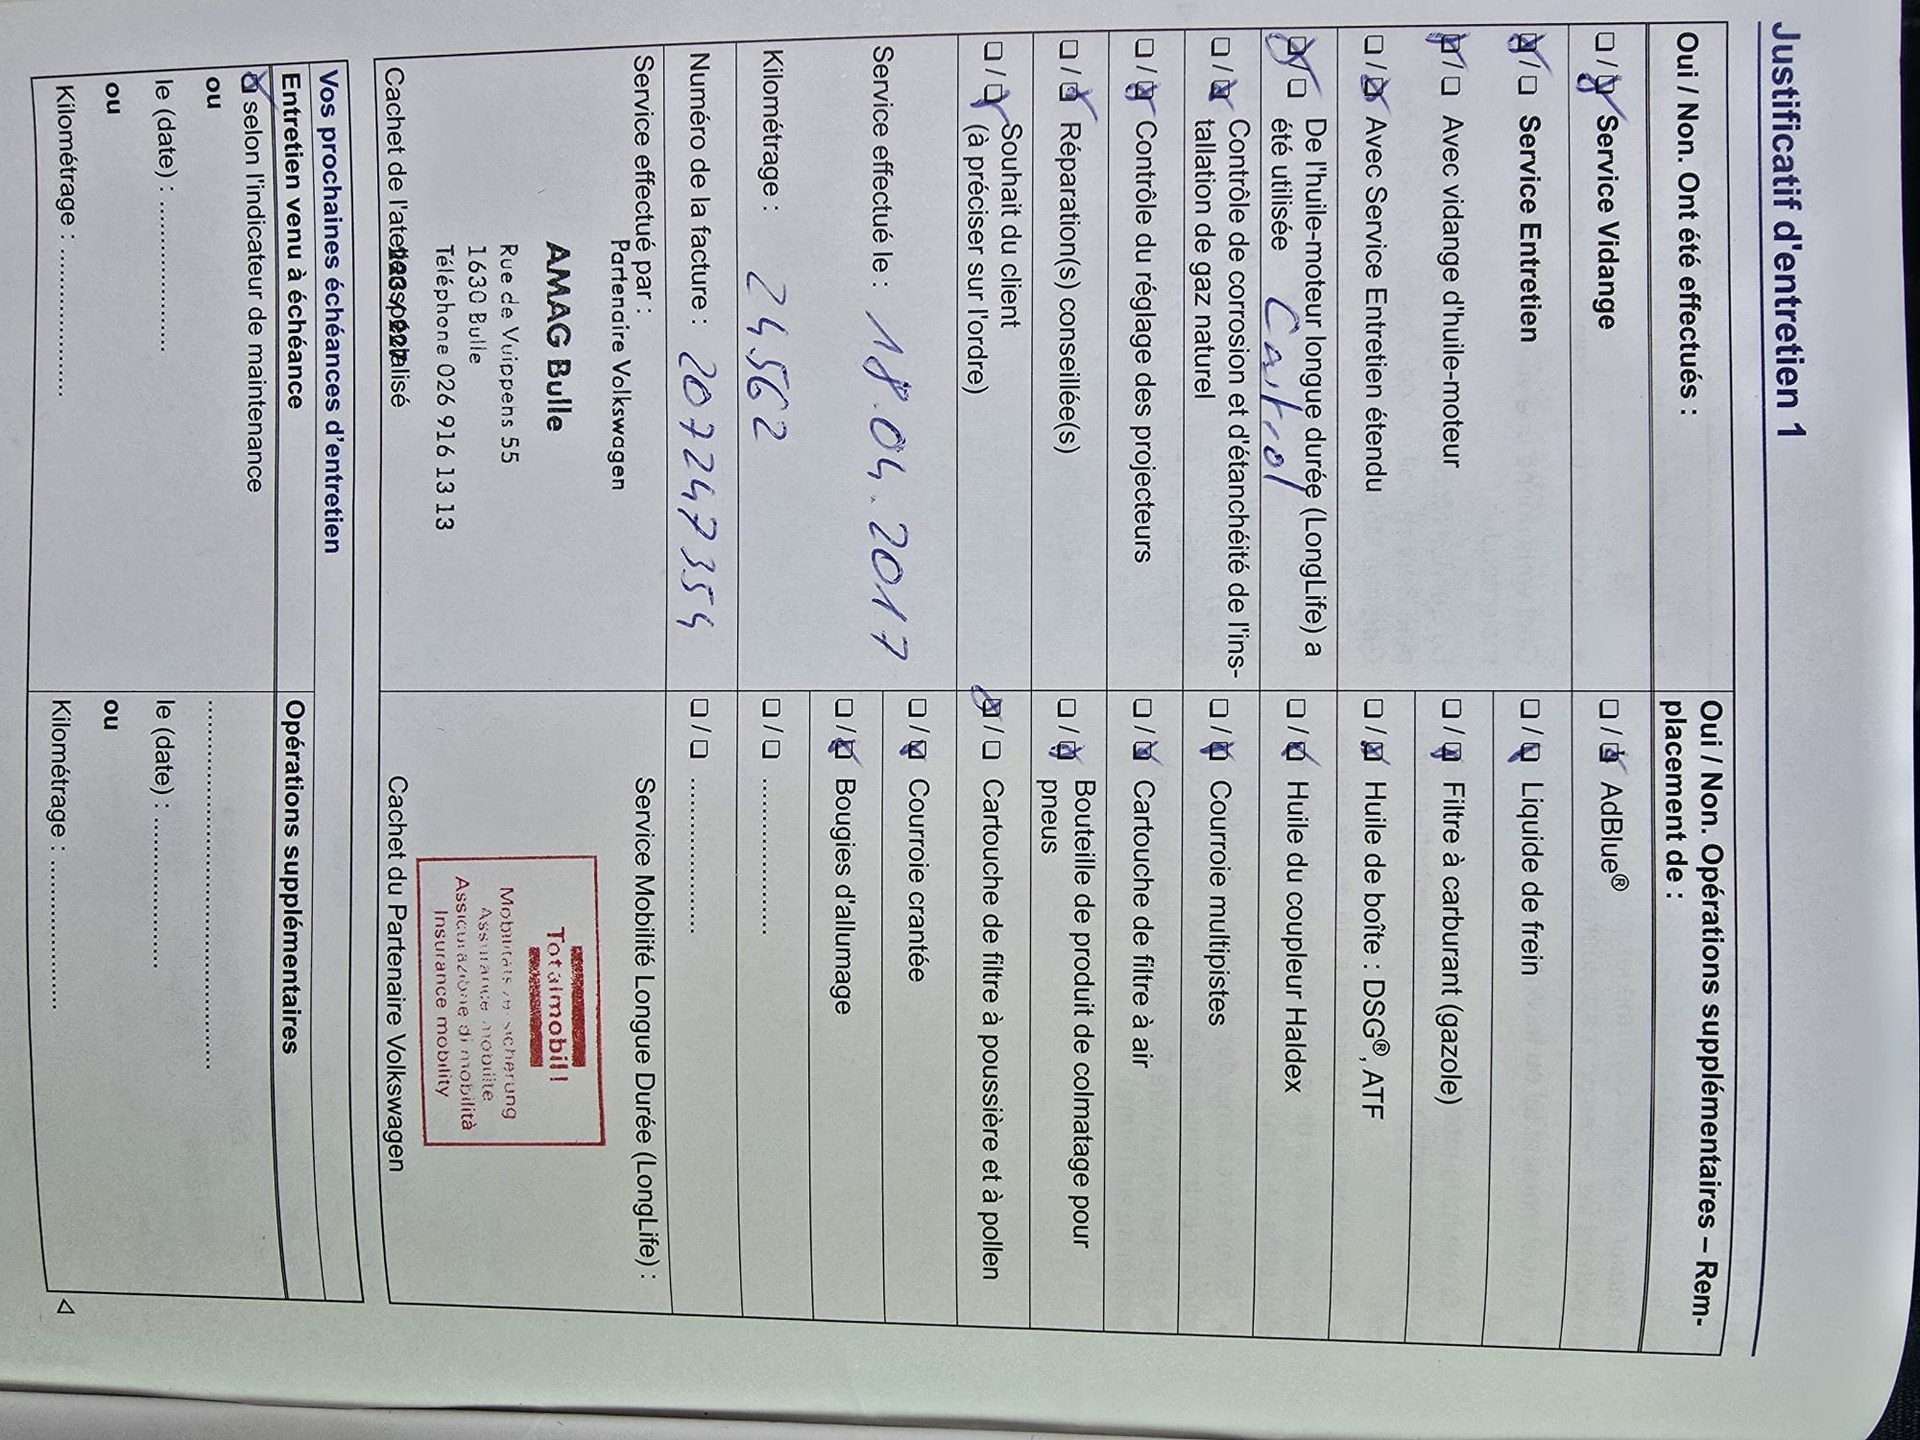 Justificatif d'entretien 1
Oui / Non. Ont été effectués :
☐ / ☒ Service Vidange
☒ / ☐ Service Entretien
☒ / ☐ Avec vidange d'huile-moteur
☐ / ☒ Avec Service Entretien étendu
☒ / ☐ De l'huile-moteur longue durée (LongLife) a
été utilisée Castrol
☐ / ☒ Contrôle de corrosion et d'étanchéité de l'ins-
tallation de gaz naturel
☐ / ☒ Contrôle du réglage des projecteurs
☐ / ☒ Réparation(s) conseillée(s)
☐ / ☒ Souhait du client
(à préciser sur l'ordre)
Service effectué le : 18.04.2017
Kilométrage : 24562
Numéro de la facture : 207247354
Service effectué par :
Partenaire Volkswagen
AMAG Bulle
Rue de Vuippens 55
1630 Bulle
Téléphone 026 916 13 13
Cachet de l'atelier spécialisé
Oui / Non. Opérations supplémentaires – Rem-
placement de :
☐ / ☒ AdBlue®
☐ / ☒ Liquide de frein
☐ / ☒ Filtre à carburant (gazole)
☐ / ☒ Huile de boîte : DSG®, ATF
☐ / ☒ Huile du coupleur Haldex
☐ / ☒ Courroie multipistes
☐ / ☒ Cartouche de filtre à air
☐ / ☒ Bouteille de produit de colmatage pour
pneus
☒ / ☐ Cartouche de filtre à poussière et à pollen
☐ / ☒ Courroie crantée
☐ / ☒ Bougies d'allumage
☐ / ☐ ....................
☐ / ☐ ....................
Service Mobilité Longue Durée (LongLife) :
Totalmobil!
Mobilitätsversicherung
Assurance mobilité
Assicurazione di mobilità
Insurance mobility
Cachet du Partenaire Volkswagen
Vos prochaines échéances d'entretien
Entretien venu à échéance
☒ selon l'indicateur de maintenance
ou
le (date) : ....................
ou
Kilométrage : ....................
Opérations supplémentaires
........................................
le (date) : ....................
ou
Kilométrage : ....................